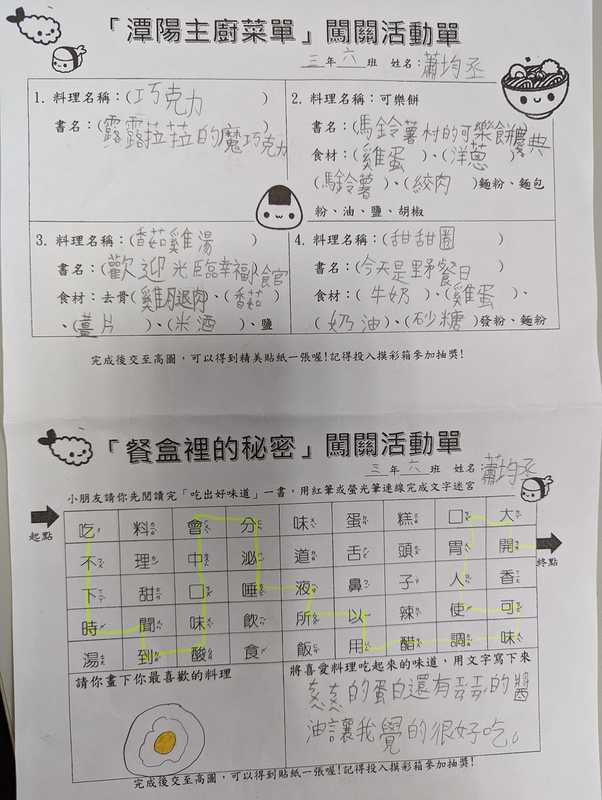 「潭陽主廚菜單」闖關活動單
三年六班 姓名:蕭均丞
1. 料理名稱:(巧克力)
書名:(露露菈菈的魔巧克力
2. 料理名稱:可樂餅
書名:(馬鈴薯村的可樂餅慶典
食材:(雞蛋)、(洋蔥)
(馬鈴薯)、(絞肉)麵粉、麵包
粉、油、鹽、胡椒
3. 料理名稱:(香菇雞湯)
書名:(歡迎光臨幸福食官
食材:去骨(雞腿肉、(香菇)
、(薑片)、(米酒)、鹽
4. 料理名稱:(甜甜圈)
書名:(今天是野餐日)
食材:(牛奶)、(雞蛋)、
(奶油)、(砂糖)發粉、麵粉
完成後交至高圖,可以得到精美貼紙一張喔!記得投入摸彩箱參加抽獎!
「餐盒裡的秘密」闖關活動單
三年六班 姓名:蕭均丞
小朋友請你先閱讀完「吃出好味道」一書,用紅筆或螢光筆連線完成文字迷宮
起點
吃 料 會 分 味 蛋 糕 口 大
不 理 中 泌 道 舌 頭 胃 開
終點
下 甜 口 唾 液 鼻 子 人 香
時 聞 味 飲 所 以 辣 使 可
湯 到 酸 食 飯 用 醋 調 味
請你畫下你最喜歡的料理
將喜愛料理吃起來的味道,用文字寫下來
的蛋白還有ㄉㄉ的醬
油讓我覺的很好吃。
完成後交至高圖,可以得到貼紙一張喔!記得投入摸彩箱參加抽獎!